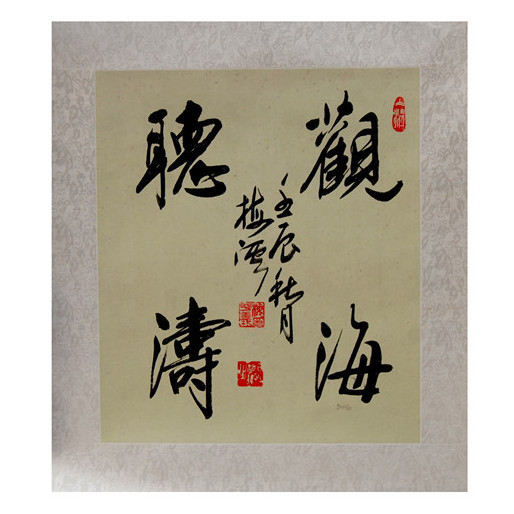 觀海
聽濤
壬辰秋月